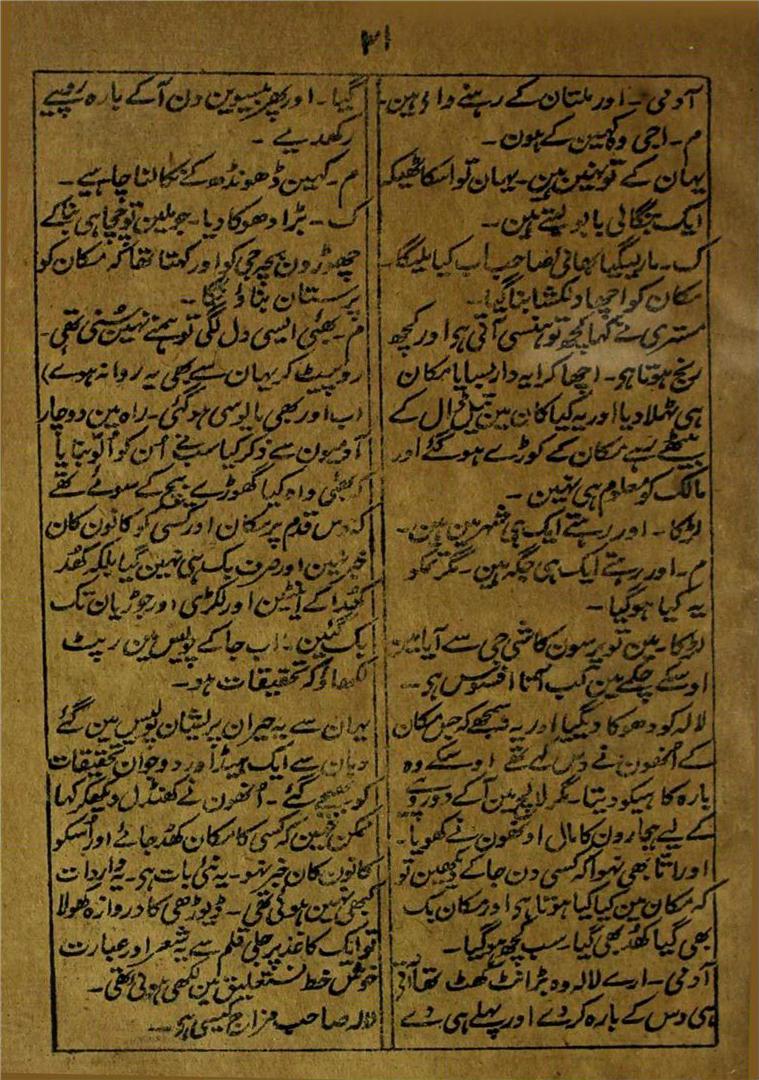 ۳۱
آدمی۔ اور ملتان کے رہنے والے ہین۔
م۔ اجی وہ کہین کے ہون۔
یہان کے تو نہین ہین۔ یہان تو اسکا ٹھیکہ
ایک بنگالی بابو لیتے ہین۔
ک۔ مار لیگیا بھائی صاحب اب کیا ملیگا۔
مکان کو اچھا دلکشا بنا گیا۔
مستری نے کہا کچھ تو ہنسی آتی ہو اور کچھ
رنج ہوتا ہو۔ اچھا کرایہ دار بسایا مکان
ہی ٹہلا دیا اور یہ کیا کان مین تیل ڈال کے
بیٹھے تھے مکان کے کوڑے ہو گئے اور
مالک کو معلوم ہی نہین۔
لڑکا۔ اور رہتے ایک ہی شہر مین ہین۔
م۔ اور رہتے ایک ہی جگہ ہین۔ مگر تمکو
یہ کیا ہو گیا۔
لڑکا۔ مین تو پرسون کاشی جی سے آیا مین
اوسکے چکمے مین کب آتا افسوس ہو۔
لالہ کو دھوکا دیگیا اور یہ نہ سمجھے کہ جس مکان
کے اُنھون نے دس لئے تھے اوسکے وہ
بارہ کاہیکو دیتا۔ مگر لالچ مین آکے دو روپیے
کے لیے بیچارون کا مال اونھون نے کھویا۔
اور اتنا بھی نہوا کہ کسی دن جاکے دیکھین تو
کہ مکان مین کیا کیا ہوتا ہو اور مکان بک
بھی گیا کھُد بھی گیا۔ سب کچھ ہو گیا۔
آدمی۔ ارے لالہ وہ بڑا نٹ کھٹ تھا آتے
ہی دس کے بارہ کر دے اور پہلے ہی دے
گیا۔ اور پھر بیسوین دن آکے بارہ روپیے
رکھدیے۔
م۔ کہین ڈھونڈھ کے نکالنا چاہیے۔
ک۔ بڑا دھوکا دیا۔ جو ملین تو چچا ہی بنا کے
چھوڑون بچہ جی کو اور کہتا تھا کہ مکان کو
پرستان بناؤنگا۔
م۔ بھئی ایسی دل لگی تو ہمنے نہین سُنی تھی۔
روپیٹ کر یہان سے بھی یہ روانہ ہوے)
اب اور بھی مایوسی ہو گئی۔ راہ مین دوچار
آدمیون سے ذکر کیا سبنے اُن کو اُلّو بنایا
کہ بھئی واہ کیا گھوڑے بیچ کے سوئے تھے
کہ دس قدم پر مکان اور کسی کو کانون کان
خبر نہین اور صرف بک ہی نہین گیا بلکہ کھُد
کھُدا کے اینٹین اور لکڑی اور جوڑیان تک
بک گئین۔ اب جاکے پولیس مین رپٹ
لکھاؤ کہ تحقیقات ہو۔
یہان سے یہ حیران پریشان پولیس مین گئے
وہان سے ایک ہیڈ اور دو جوان تحقیقات
کو بھیجے گئے۔ اُنھون نے کھنڈل دیکھکر کہا
ممکن نہین کہ کسی کا مکان کھُد جائے اور اُسکو
کانون کان خبر نہو۔ یہ نئی بات ہی۔ یہ واردات
کبھی نہین ہوئی تھی۔ ڈیوڑھی کا دروازہ کھولا
تو ایک کاغذ پر جلی قلم سے یہ شعر اور عبارت
خوش خط نستعلیق مین لکھی ہوئی تھی۔
لالہ صاحب مزاج کیسی ہو۔